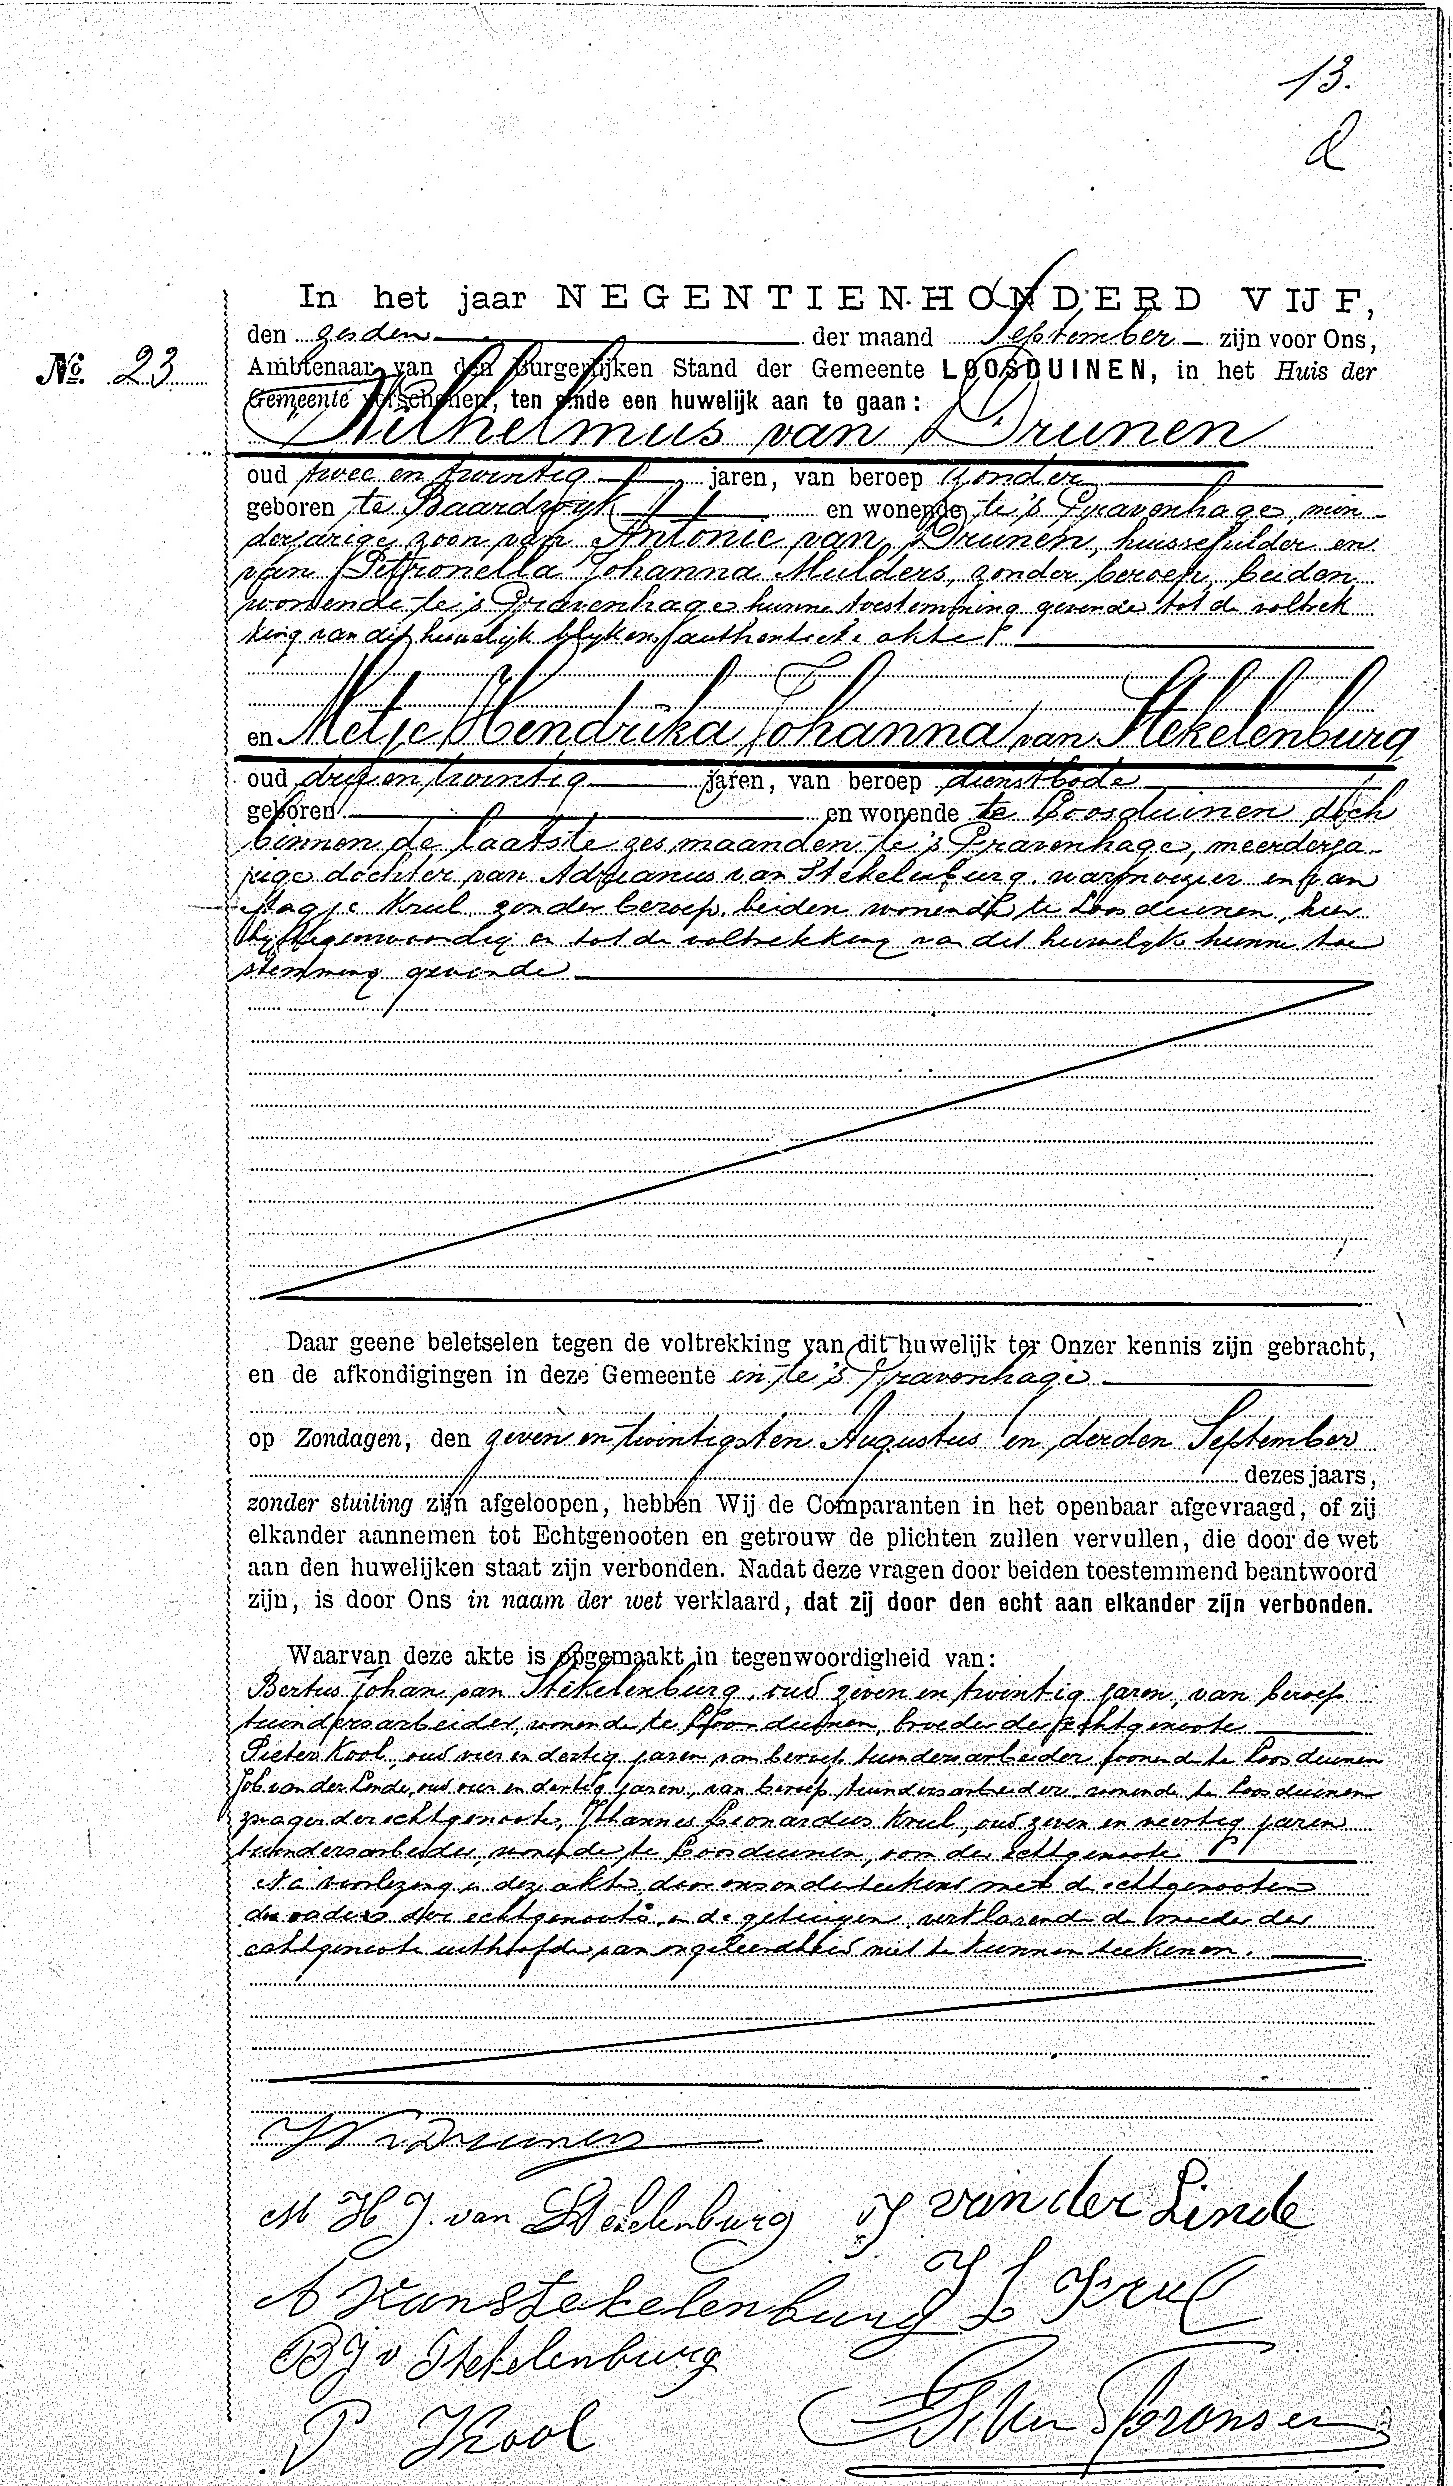 13.
In het jaar NEGENTIENHONDERD VIJF,
den zesden der maand September zijn voor Ons,
No. 23
Ambtenaar van den Burgerlijken Stand der Gemeente LOOSDUINEN, in het Huis der
Gemeente verschenen, ten einde een huwelijk aan te gaan:
Wilhelmus van Drunen
oud twee en twintig jaren, van beroep zonder
geboren te Baardwijk en wonende te 's Gravenhage, min
derjarige zoon van Antonie van Drunen, huisschilder en
van Petronella Johanna Mulders, zonder beroep, beiden
wonende te 's Gravenhage hunne toestemming gevende tot de voltrek
king van dit huwelijk blijkens authentieke akte
en Metje Hendrika Johanna van Stekelenburg
oud drie en twintig jaren, van beroep dienstbode
geboren en wonende te Loosduinen doch
binnen de laatste zes maanden te 's Gravenhage, meerderja-
rige dochter van Adrianus van Stekelenburg, warmoezier en van
Krul, zonder beroep, beiden wonende te Loosduinen, hier
bij tegenwoordig en tot de voltrekking van dit huwelijk hunne toe
stemming gevende
Daar geene beletselen tegen de voltrekking van dit huwelijk ter Onzer kennis zijn gebracht,
en de afkondigingen in deze Gemeente en te 's Gravenhage
op Zondagen, den zeven en twintigsten Augustus en derden September
dezes jaars,
zonder stuiting zijn afgeloopen, hebben Wij de Comparanten in het openbaar afgevraagd, of zij
elkander aannemen tot Echtgenooten en getrouw de plichten zullen vervullen, die door de wet
aan den huwelijken staat zijn verbonden. Nadat deze vragen door beiden toestemmend beantwoord
zijn, is door Ons in naam der wet verklaard, dat zij door den echt aan elkander zijn verbonden.
Waarvan deze akte is opgemaakt in tegenwoordigheid van:
Bertus Johan van Stekelenburg, oud zeven en twintig jaren, van beroep
tuindersarbeider, wonende te Loosduinen, broeder der echtgenoote
Pieter Kool, oud vier en dertig jaren van beroep tuindersarbeider wonende te Loosduinen
Job van der Linde, oud vier en dertig jaren, van beroep tuindersarbeider, wonende te Loosduinen
zwager der echtgenoote, Johannes Leonardus Krul, oud zeven en veertig jaren
tuindersarbeider, wonende te Loosduinen, oom der echtgenoote
Na voorlezing is deze akte door ons onderteekend met de echtgenooten
den vader der echtgenoote en de getuigen, verklarende de moeder der
echtgenoote uithoofde van ongeleerdheid niet te kunnen teekenen.
W v Drunen
M H J. van Stekelenburg
J van der Linde
A van Stekelenburg
J L Krul
B J v Stekelenburg
P Kool